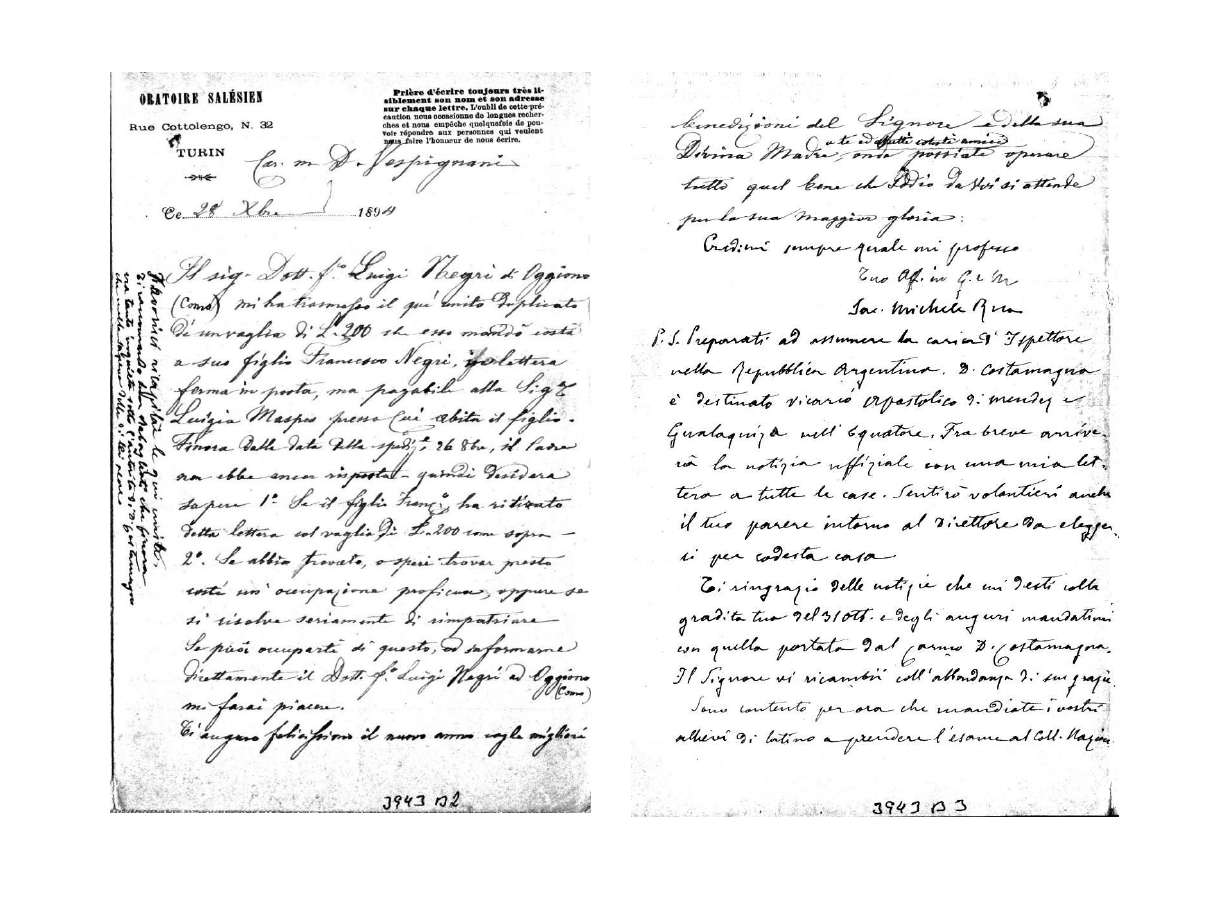 ORATOIRE SALÉSIEN
Rue Cottolengo, N. 32
TURIN
Prière d'écrire toujours très li-
siblement son nom et son adresse
sur chaque lettre. L'oubli de cette pré-
caution nous occasionne de longues recher-
ches et nous empêche quelquefois de pou-
voir répondre aux personnes qui veulent
nous faire l'honneur de nous écrire.
Car. m. D. Vespignani
Ce 28 Xbre 1894
Il sig. Dott. f.co Luigi Negri di Oggiono
(Como) mi ha trasmesso il qui unito duplicato
di un vaglia di L. 200 che esso mandò costà
a suo figlio Francesco Negri, in lettera
ferma in posta, ma pagabile alla Sig.ra
Luigia Maspes presso cui abita il figlio.
Finora dalla data della spediz.e 26 8bre, il Padre
non ebbe ancor risposta - quindi desidera
sapere 1° Se il figlio Franc.o ha ritirato
detta lettera col vaglia di L. 200 come sopra -
2°. Se abbia trovato, o speri trovar presto
costì un' occupazione proficua, oppure se
si risolve seriamente di rimpatriare
Se puoi occuparti di questo, ed informarne
direttamente il Dott. f.co Luigi Negri ad Oggiono
(Como)
mi farai piacere.
Ti auguro felicissimo il nuovo anno colle migliori
Favorisci ricapitar le qui unite.
Ti raccomando
3943 B2
benedizioni del Signore e della sua
a te ed a tutti cotesti amici
Divina Madre onde possiate operare
tutto quel bene che Iddio da Voi si attende
per la sua maggior gloria:
Credimi sempre quale mi professo
Tuo Aff. in G. e M
Sac. Michele Rua
P. S. Preparati ad assumere la carica d' Ispettore
nella Repubblica Argentina. D. Costamagna
è destinato vicario Apostolico di Mendez e
Gualaquiza nell' Equatore. Fra breve arrive-
rà la notizia uffiziale con una mia let-
tera a tutte le case. Sentirò volontieri anche
il tuo parere intorno al Direttore da elegger-
si per codesta casa
Ti ringrazio delle notizie che mi desti colla
gradita tua del 31 Ott. e degli auguri mandatimi
con quella portata dal carmo D. Costamagna.
Il Signore vi ricambii coll' abbondanza di sue grazie.
Sono contento per ora che mandiate i vostri
allievi di latino a prendere l'esame al Coll. Nazion.
3943 B 3